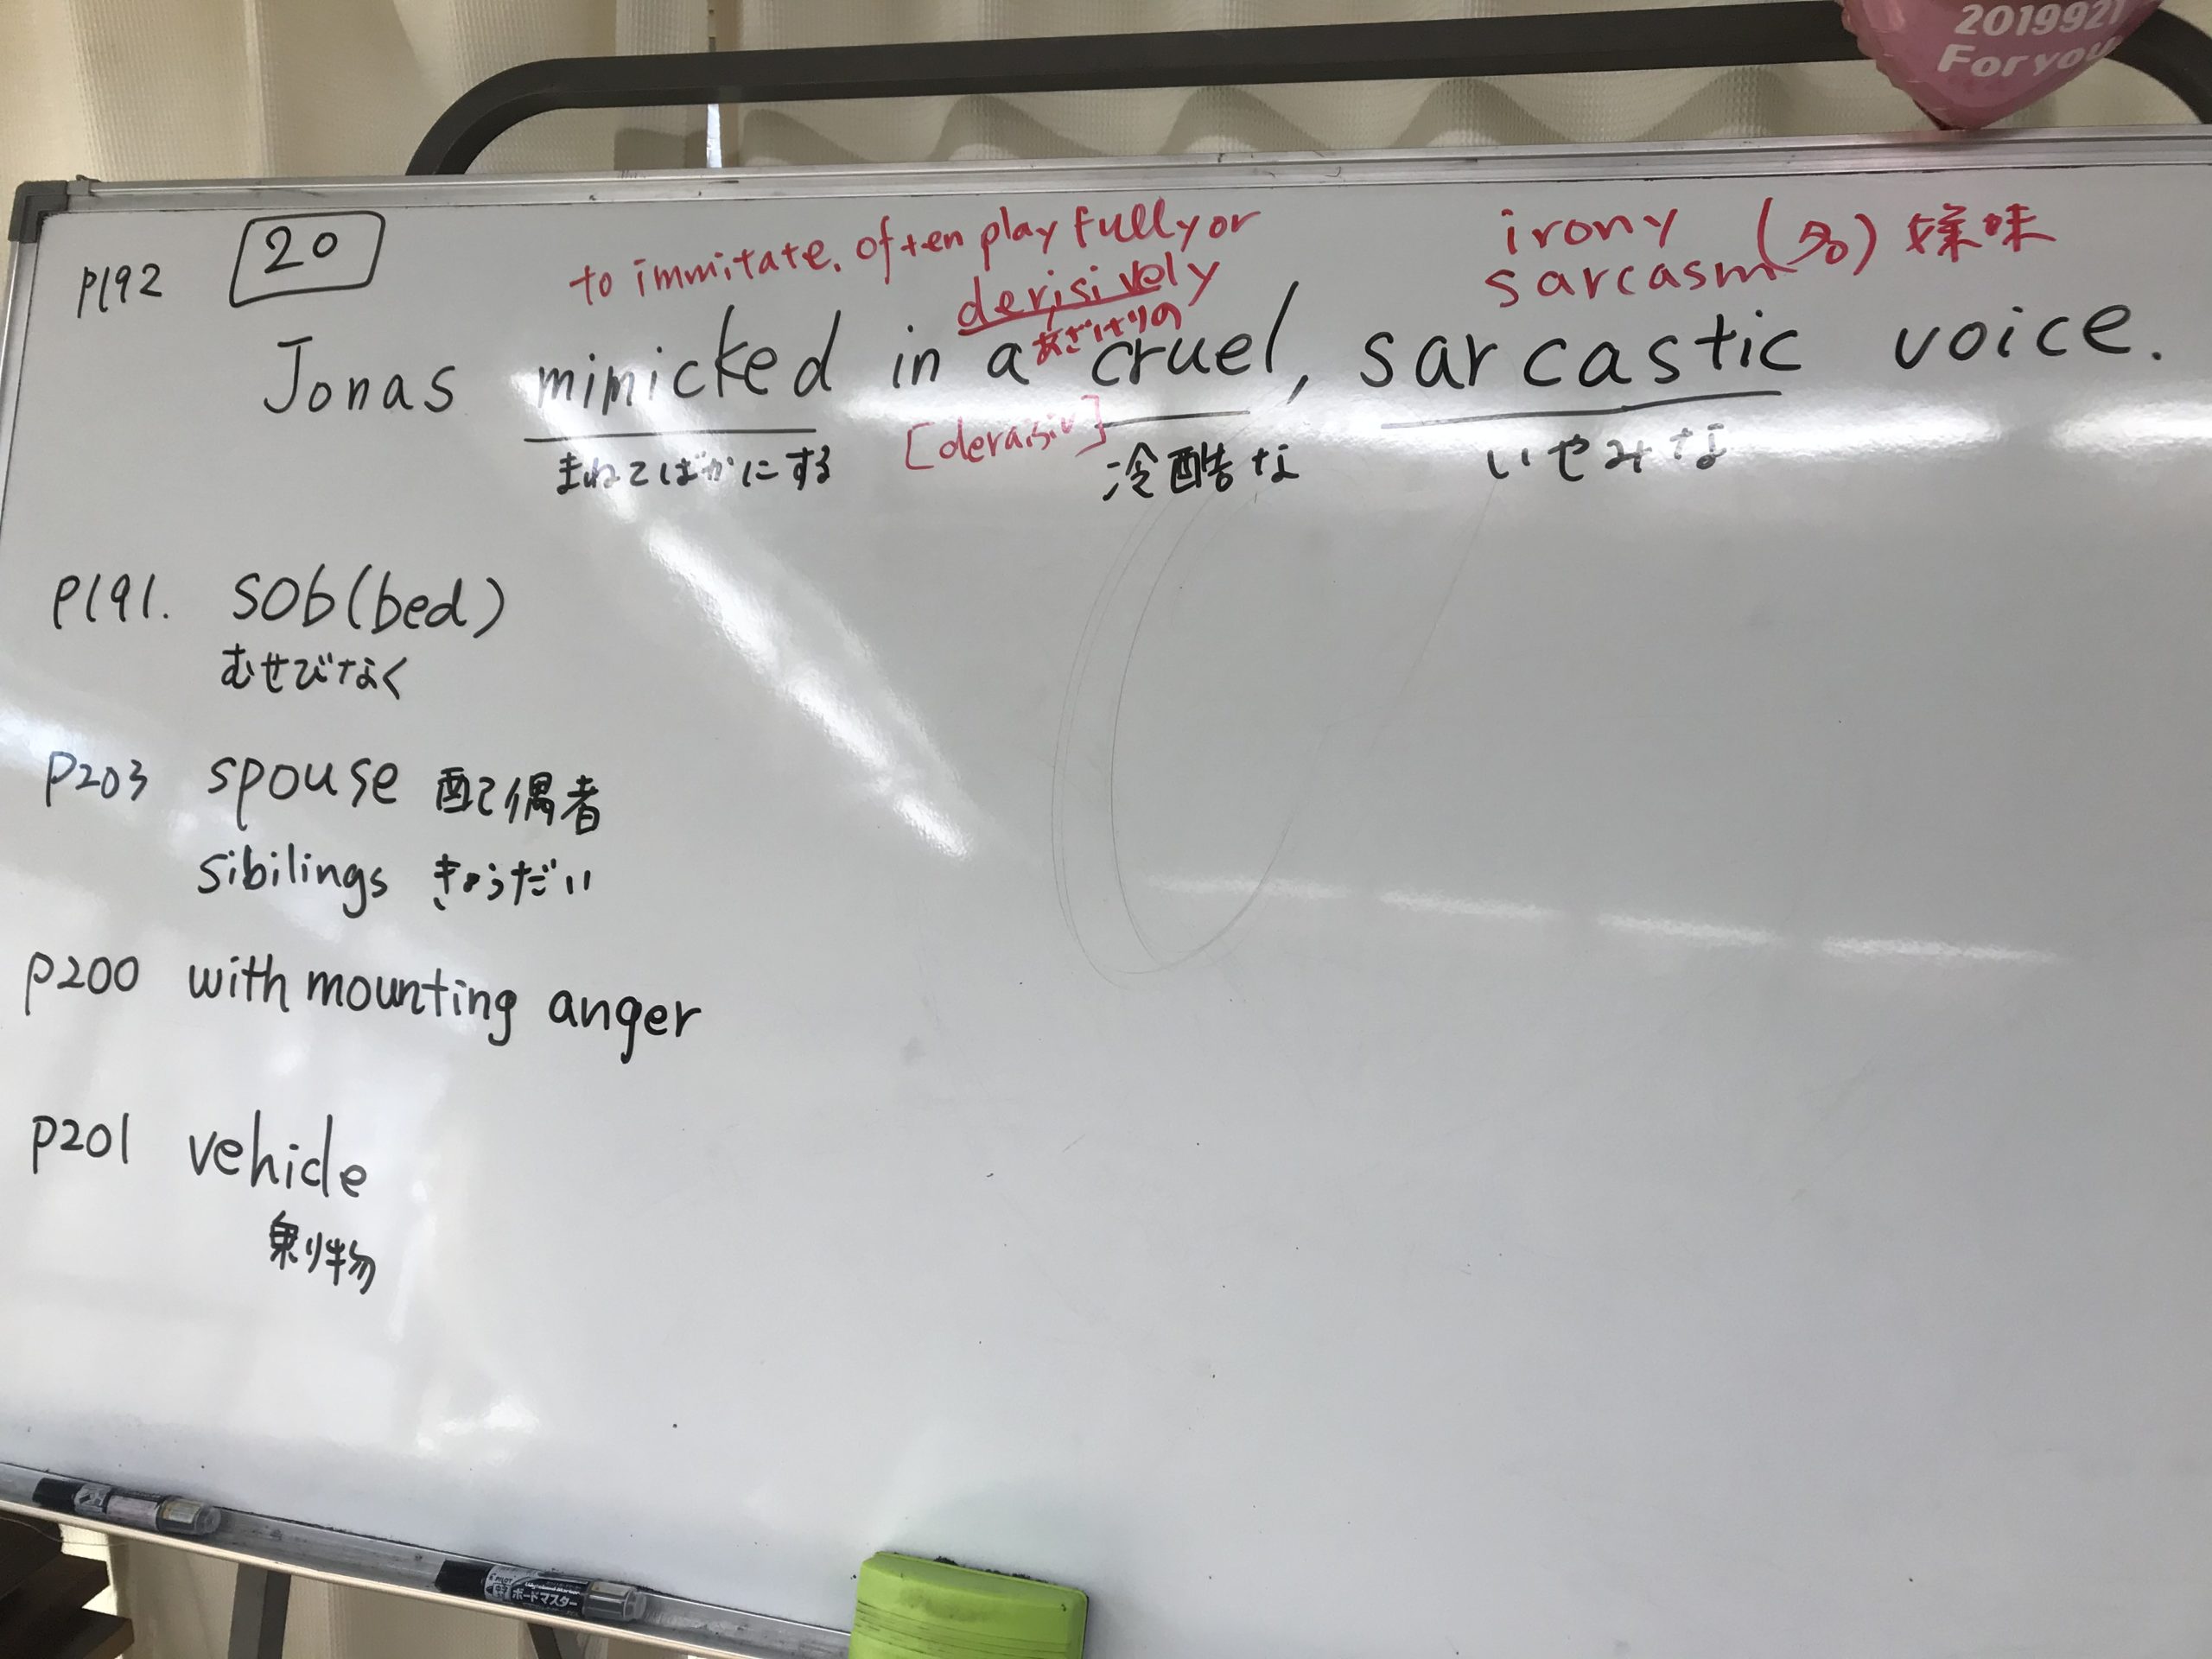 2019921
For you
P192 20
to immitate. often playfully or
derisively
あざけりの
irony
sarcasm (名) 嫌味
Jonas mimicked in a cruel, sarcastic voice.
まねてばかにする
[deraisiv]
冷酷な
いやみな
P191. sob(bed)
むせびなく
P203 spouse 配偶者
sibilings きょうだい
P200 with mounting anger
P201 vehicle
乗り物
ボードマスター